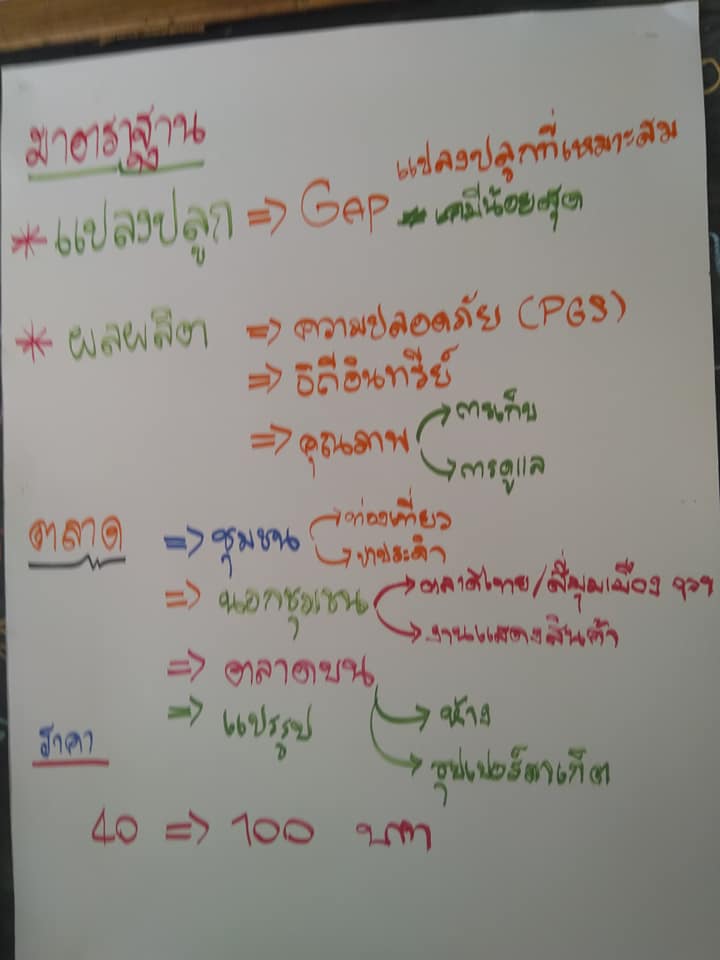 มาตราฐาน
* แปลงปลูก => GAP แปลงปลูกที่เหมาะสม
เคมีน้อยสุด
* ผลผลิต => ความปลอดภัย (PGS)
=> วิถีอินทรีย์
=> คุณภาพ → การเก็บ
→ การดูแล
ตลาด => ชุมชน → ท่องเที่ยว
→ ขาประจำ
=> นอกชุมชน → ตลาดไทย/สี่มุมเมือง ฯลฯ
→ งานแสดงสินค้า
=> ตลาดบน
=> แปรรูป → ห้าง
→ ซุปเปอร์มาเก็ต
ราคา
40 => 100 บาท